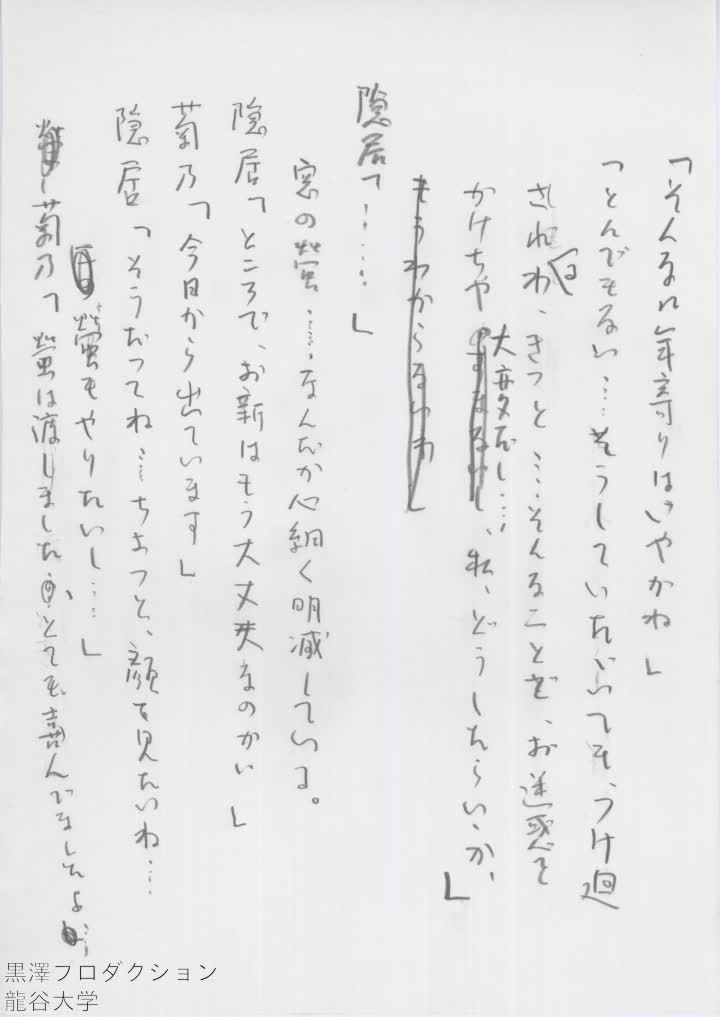 「そんなに年寄りはいやかね」
「とんでもない…そうしていたゞいても、つけ廻
されるわ、きっと…そんなことで、お迷惑を
かけちゃ大変だし…、私、どうしたらいゝか、」
もうわからないわ」
隠居「……」
窓の螢……なんだか心細く明滅している。
隠居「ところで、お新はもう大丈夫なのかい」
菊乃「今日から出ています」
隠居「そうだってね…ちょっと、顔を見たいね…
螢もやりたいし…」
菊乃「螢は渡しました、とても喜んでましたよ…
黒澤プロダクション
龍谷大学